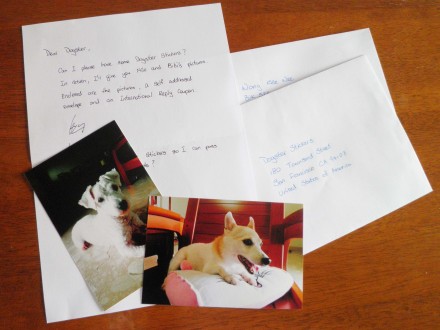 Dear Dogster,
Can I please have some Dogster Stickers?
In return, I'll give you Milo and Bibi's pictures.
Enclosed are the pictures, a self addressed
envelope and an International Reply Coupon.
Stickers so I can pass
?
Dogster Stickers
Townsend Street
San Francisco CA
United States of America